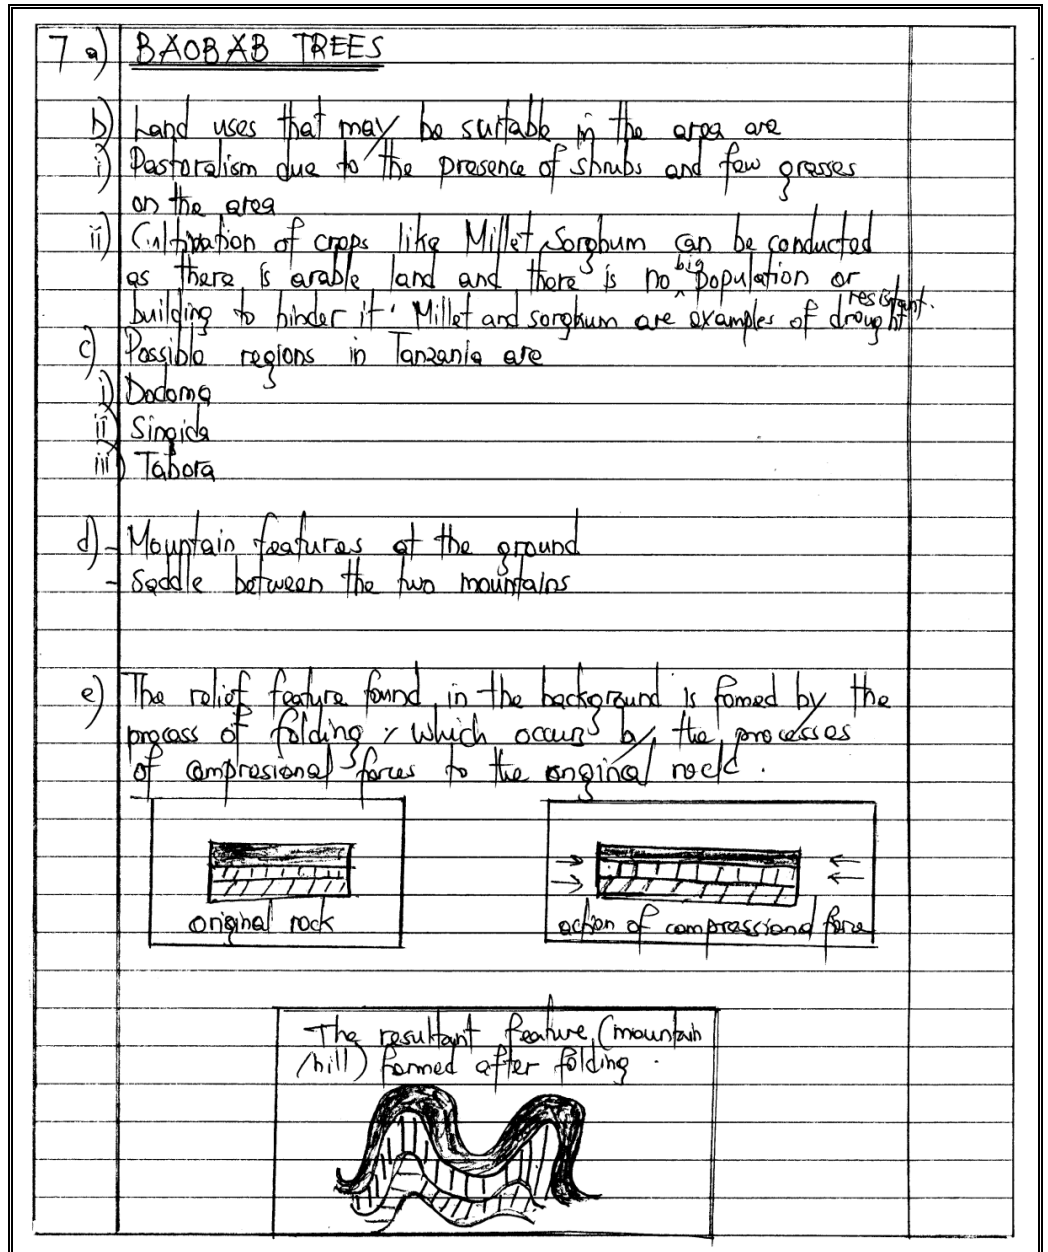 7 a) BAOBAB TREES
b) Land uses that may be suitable in the area are
i) Pastoralism due to the presence of shrubs and few grasses
on the area
ii) Cultivation of crops like Millet, Sorghum can be conducted
as there is arable land and there is no big population or
building to hinder it. Millet and sorghum are examples of drought resistant.
c) Possible regions in Tanzania are
i) Dodoma
ii) Singida
iii) Tabora
d) - Mountain features at the ground
- Saddle between the two mountains
e) The relief feature found in the background is fomed by the
process of folding; which occurs by the processes
of compresional forces to the original rock.
original rock
action of compressional force
The resultant feature (mountain
/hill) formed after folding.